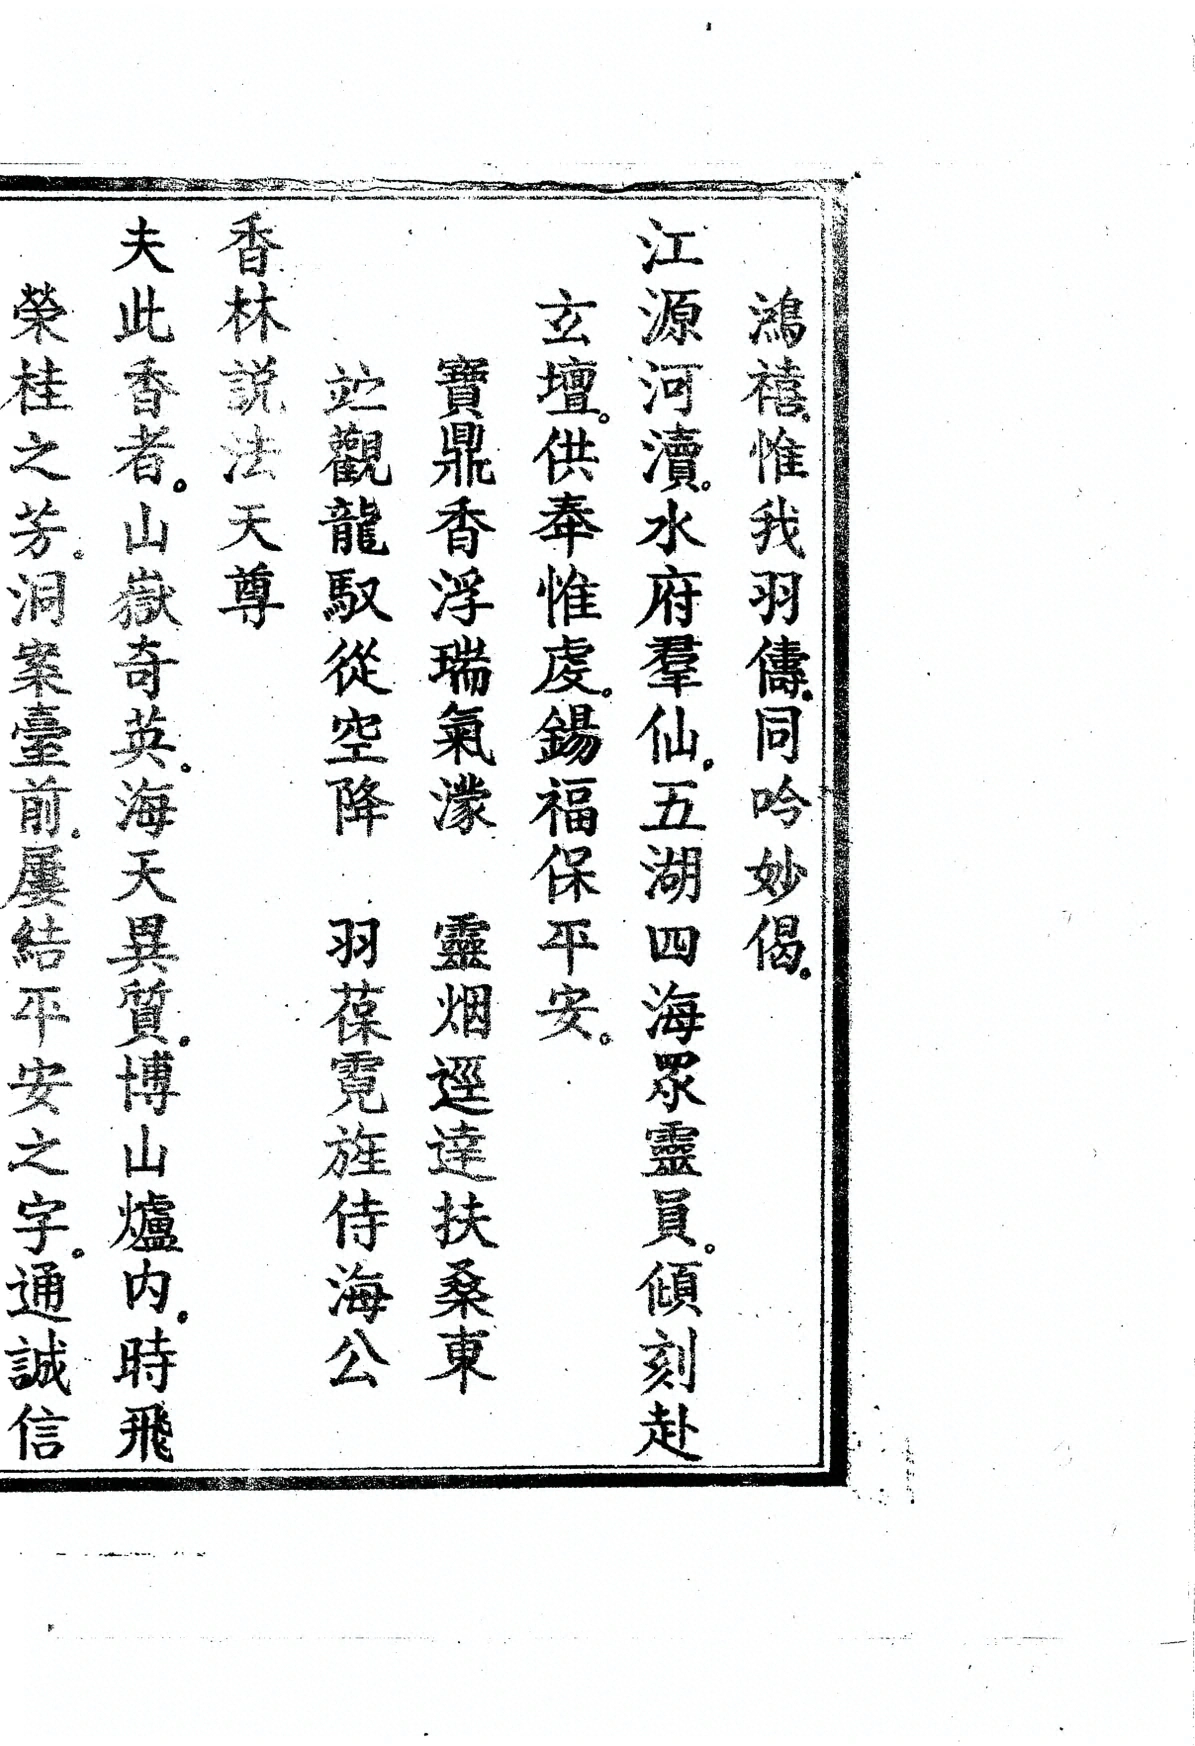 鴻禧。惟我羽儔。同吟妙偈。
江源河瀆。水府羣仙。五湖四海眾靈員。傾刻赴
玄壇。供奉惟虔。錫福保平安。
寶鼎香浮瑞氣濛　靈烟逕達扶桑東
竚觀龍馭從空降　羽葆霓旌侍海公
香林説法天尊
夫此香者。山嶽奇英。海天異質。博山爐内。時飛
榮桂之芳。洞案臺前。屢結平安之字。通誠信